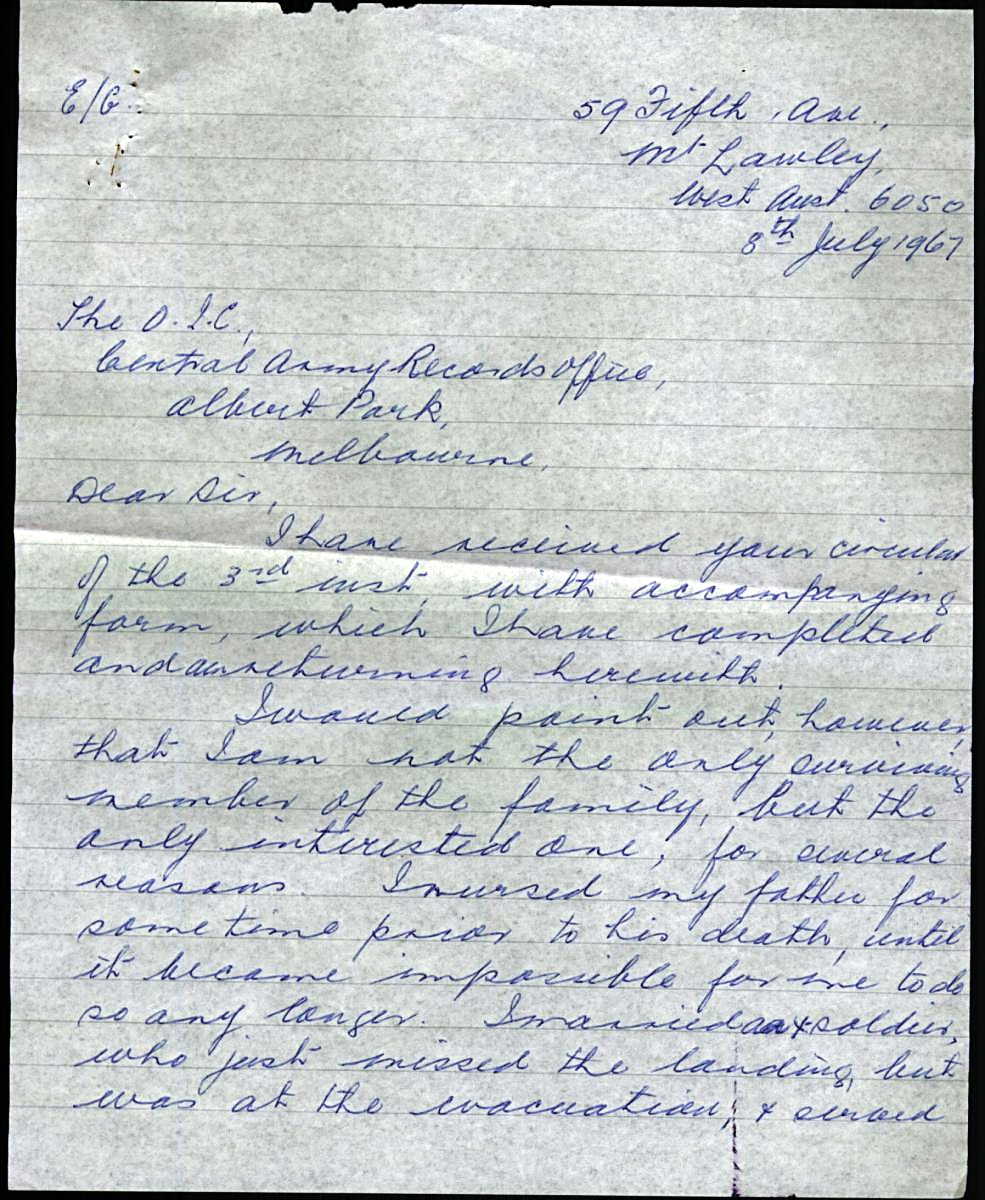 E/G.
59 Fifth Ave.,
Mt Lawley,
West Aust. 6050
8th July 1967
The O.I.C.,
Central Army Records Office,
Albert Park,
Melbourne.
Dear Sir,
I have received your circular
of the 3rd inst, with accompanying
form, which I have completed
and am returning herewith.
I would point out, however,
that I am not the only surviving
member of the family, but the
only interested one, for several
reasons. I nursed my father for
sometime prior to his death, until
it became impossible for me to do
so any longer. I married a soldier,
who just missed the landing, but
was at the evacuation, & served